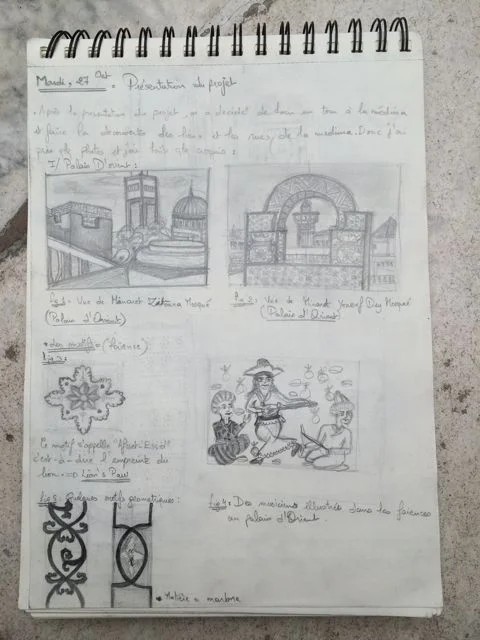 Mardi, 27 Oct = Présentation du projet
. Après la présentation du projet, on a décidé de faire un tour à la médina
et faire la découverte des lieux et les rues, de la medina. Donc j'ai
pris des photos et j'ai fait des croquis :
I/ Palais D'orient :
Fig 1: Vue de Minaret Zitouna Mosqué
(Palais d'Orient)
Fig 2: Vue de Minaret Youssef Dey Mosqué
(Palais d'Orient)
* Les motifs = (faïence)
Fig 3:
Ce motif s'appelle
c'est-à-dire l'empreinte du
lion. => Lion's Paw
Fig 4: Des musiciens illustrés dans les faïences
au palais d'Orient.
Fig 5: Quelques motifs géometriques :
* Matière = marbre